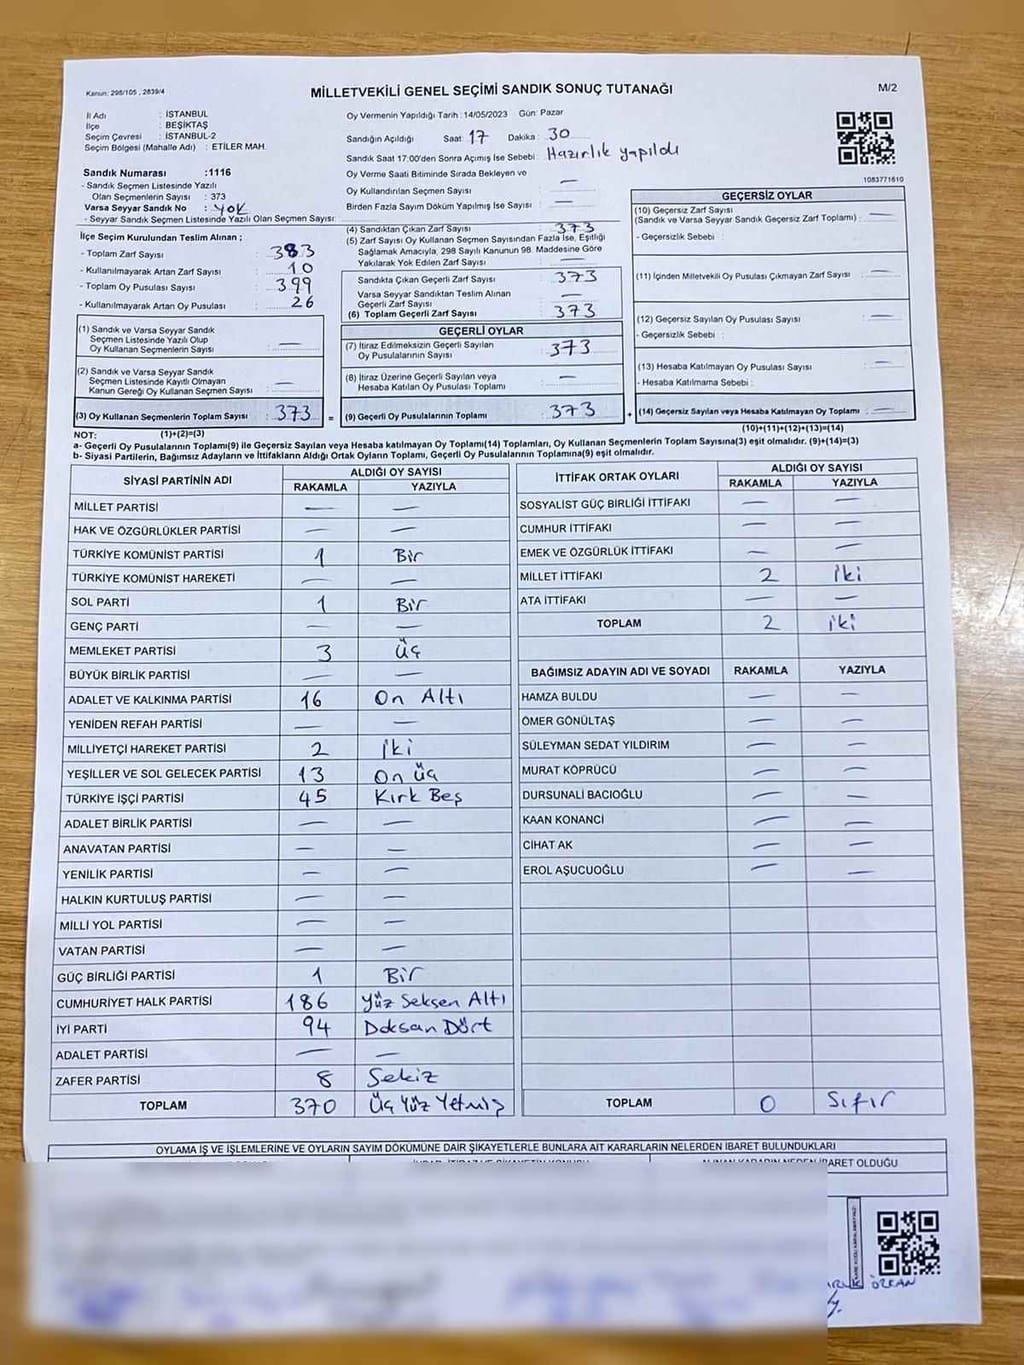 Kanun: 298/105 , 2839/4
MİLLETVEKİLİ GENEL SEÇİMİ SANDIK SONUÇ TUTANAĞI
M/2
İl Adı : İSTANBUL
İlçe : BEŞİKTAŞ
Seçim Çevresi : İSTANBUL-2
Seçim Bölgesi (Mahalle Adı) : ETİLER MAH.
Oy Vermenin Yapıldığı Tarih : 14/05/2023 Gün: Pazar
Sandığın Açıldığı Saat: 17 Dakika : 30
Sandık Saat 17:00'den Sonra Açımış İse Sebebi: Hazırlık yapıldı
Oy Verme Saati Bitiminde Sırada Bekleyen ve
Oy Kullandırılan Seçmen Sayısı : —
Birden Fazla Sayım Döküm Yapılmış İse Sayısı : —
1083771610
Sandık Numarası :1116
- Sandık Seçmen Listesinde Yazılı
Olan Seçmenlerin Sayısı : 373
Varsa Seyyar Sandık No : YOK
- Seyyar Sandık Seçmen Listesinde Yazılı Olan Seçmen Sayısı:
İlçe Seçim Kurulundan Teslim Alınan ;
- Toplam Zarf Sayısı : 383
- Kullanılmayarak Artan Zarf Sayısı : 10
- Toplam Oy Pusulası Sayısı : 399
- Kullanılmayarak Artan Oy Pusulası : 26
(1) Sandık ve Varsa Seyyar Sandık
Seçmen Listesinde Yazılı Olup
Oy Kullanan Seçmenlerin Sayısı : —
(2) Sandık ve Varsa Seyyar Sandık
Seçmen Listesinde Kayıtlı Olmayan
Kanun Gereği Oy Kullanan Seçmen Sayısı : —
(3) Oy Kullanan Seçmenlerin Toplam Sayısı : 373 =
(1)+(2)=(3)
(4) Sandıktan Çıkan Zarf Sayısı : 373
(5) Zarf Sayısı Oy Kullanan Seçmen Sayısından Fazla İse, Eşitliği
Sağlamak Amacıyla, 298 Sayılı Kanunun 98. Maddesine Göre
Yakılarak Yok Edilen Zarf Sayısı : —
Sandıkta Çıkan Geçerli Zarf Sayısı : 373
Varsa Seyyar Sandıktan Teslim Alınan
Geçerli Zarf Sayısı : —
(6) Toplam Geçerli Zarf Sayısı : 373
GEÇERLİ OYLAR
(7) İtiraz Edilmeksizin Geçerli Sayılan
Oy Pusulalarının Sayısı : 373
(8) İtiraz Üzerine Geçerli Sayılan veya
Hesaba Katılan Oy Pusulası Toplamı : —
(9) Geçerli Oy Pusulalarının Toplamı : 373 +
GEÇERSİZ OYLAR
(10) Geçersiz Zarf Sayısı
(Sandık ve Varsa Seyyar Sandık Geçersiz Zarf Toplamı) : —
- Geçersizlik Sebebi :
(11) İçinden Milletvekili Oy Pusulası Çıkmayan Zarf Sayısı : —
(12) Geçersiz Sayılan Oy Pusulası Sayısı : —
- Geçersizlik Sebebi :
(13) Hesaba Katılmayan Oy Pusulası Sayısı : —
- Hesaba Katılmama Sebebi :
(14) Geçersiz Sayılan veya Hesaba Katılmayan Oy Toplamı : —
(10)+(11)+(12)+(13)=(14)
NOT:
a- Geçerli Oy Pusulalarının Toplamı(9) ile Geçersiz Sayılan veya Hesaba katılmayan Oy Toplamı(14) Toplamları, Oy Kullanan Seçmenlerin Toplam Sayısına(3) eşit olmalıdır. (9)+(14)=(3)
b- Siyasi Partilerin, Bağımsız Adayların ve İttifakların Aldığı Ortak Oyların Toplamı, Geçerli Oy Pusulalarının Toplamına(9) eşit olmalıdır.
SİYASİ PARTİNİN ADI
ALDIĞI OY SAYISI
RAKAMLA YAZIYLA
MİLLET PARTİSİ — —
HAK VE ÖZGÜRLÜKLER PARTİSİ — —
TÜRKİYE KOMÜNİST PARTİSİ 1 Bir
TÜRKİYE KOMÜNİST HAREKETİ — —
SOL PARTİ 1 Bir
GENÇ PARTİ — —
MEMLEKET PARTİSİ 3 üç
BÜYÜK BİRLİK PARTİSİ — —
ADALET VE KALKINMA PARTİSİ 16 On Altı
YENİDEN REFAH PARTİSİ — —
MİLLİYETÇİ HAREKET PARTİSİ 2 iki
YEŞİLLER VE SOL GELECEK PARTİSİ 13 On üç
TÜRKİYE İŞÇİ PARTİSİ 45 Kırk Beş
ADALET BİRLİK PARTİSİ — —
ANAVATAN PARTİSİ — —
YENİLİK PARTİSİ — —
HALKIN KURTULUŞ PARTİSİ — —
MİLLİ YOL PARTİSİ — —
VATAN PARTİSİ — —
GÜÇ BİRLİĞİ PARTİSİ 1 Bir
CUMHURİYET HALK PARTİSİ 186 Yüz Seksen Altı
İYİ PARTİ 94 Doksan Dört
ADALET PARTİSİ — —
ZAFER PARTİSİ 8 Sekiz
TOPLAM 370 Üç Yüz Yetmiş
İTTİFAK ORTAK OYLARI
ALDIĞI OY SAYISI
RAKAMLA YAZIYLA
SOSYALİST GÜÇ BİRLİĞİ İTTİFAKI — —
CUMHUR İTTİFAKI — —
EMEK VE ÖZGÜRLÜK İTTİFAKI — —
MİLLET İTTİFAKI 2 iki
ATA İTTİFAKI — —
TOPLAM 2 iki
BAĞIMSIZ ADAYIN ADI VE SOYADI RAKAMLA YAZIYLA
HAMZA BULDU — —
ÖMER GÖNÜLTAŞ — —
SÜLEYMAN SEDAT YILDIRIM — —
MURAT KÖPRÜCÜ — —
DURSUNALİ BACIOĞLU — —
KAAN KONANCİ — —
CİHAT AK — —
EROL AŞUCUOĞLU — —
TOPLAM 0 Sıfır
OYLAMA İŞ VE İŞLEMLERİNE VE OYLARIN SAYIM DÖKÜMÜNE DAİR ŞİKAYETLERLE BUNLARA AİT KARARLARIN NELERDEN İBARET BULUNDUKLARI
ALINAN KARARIN NEDEN İBARET OLDUĞU
ÖZKAN